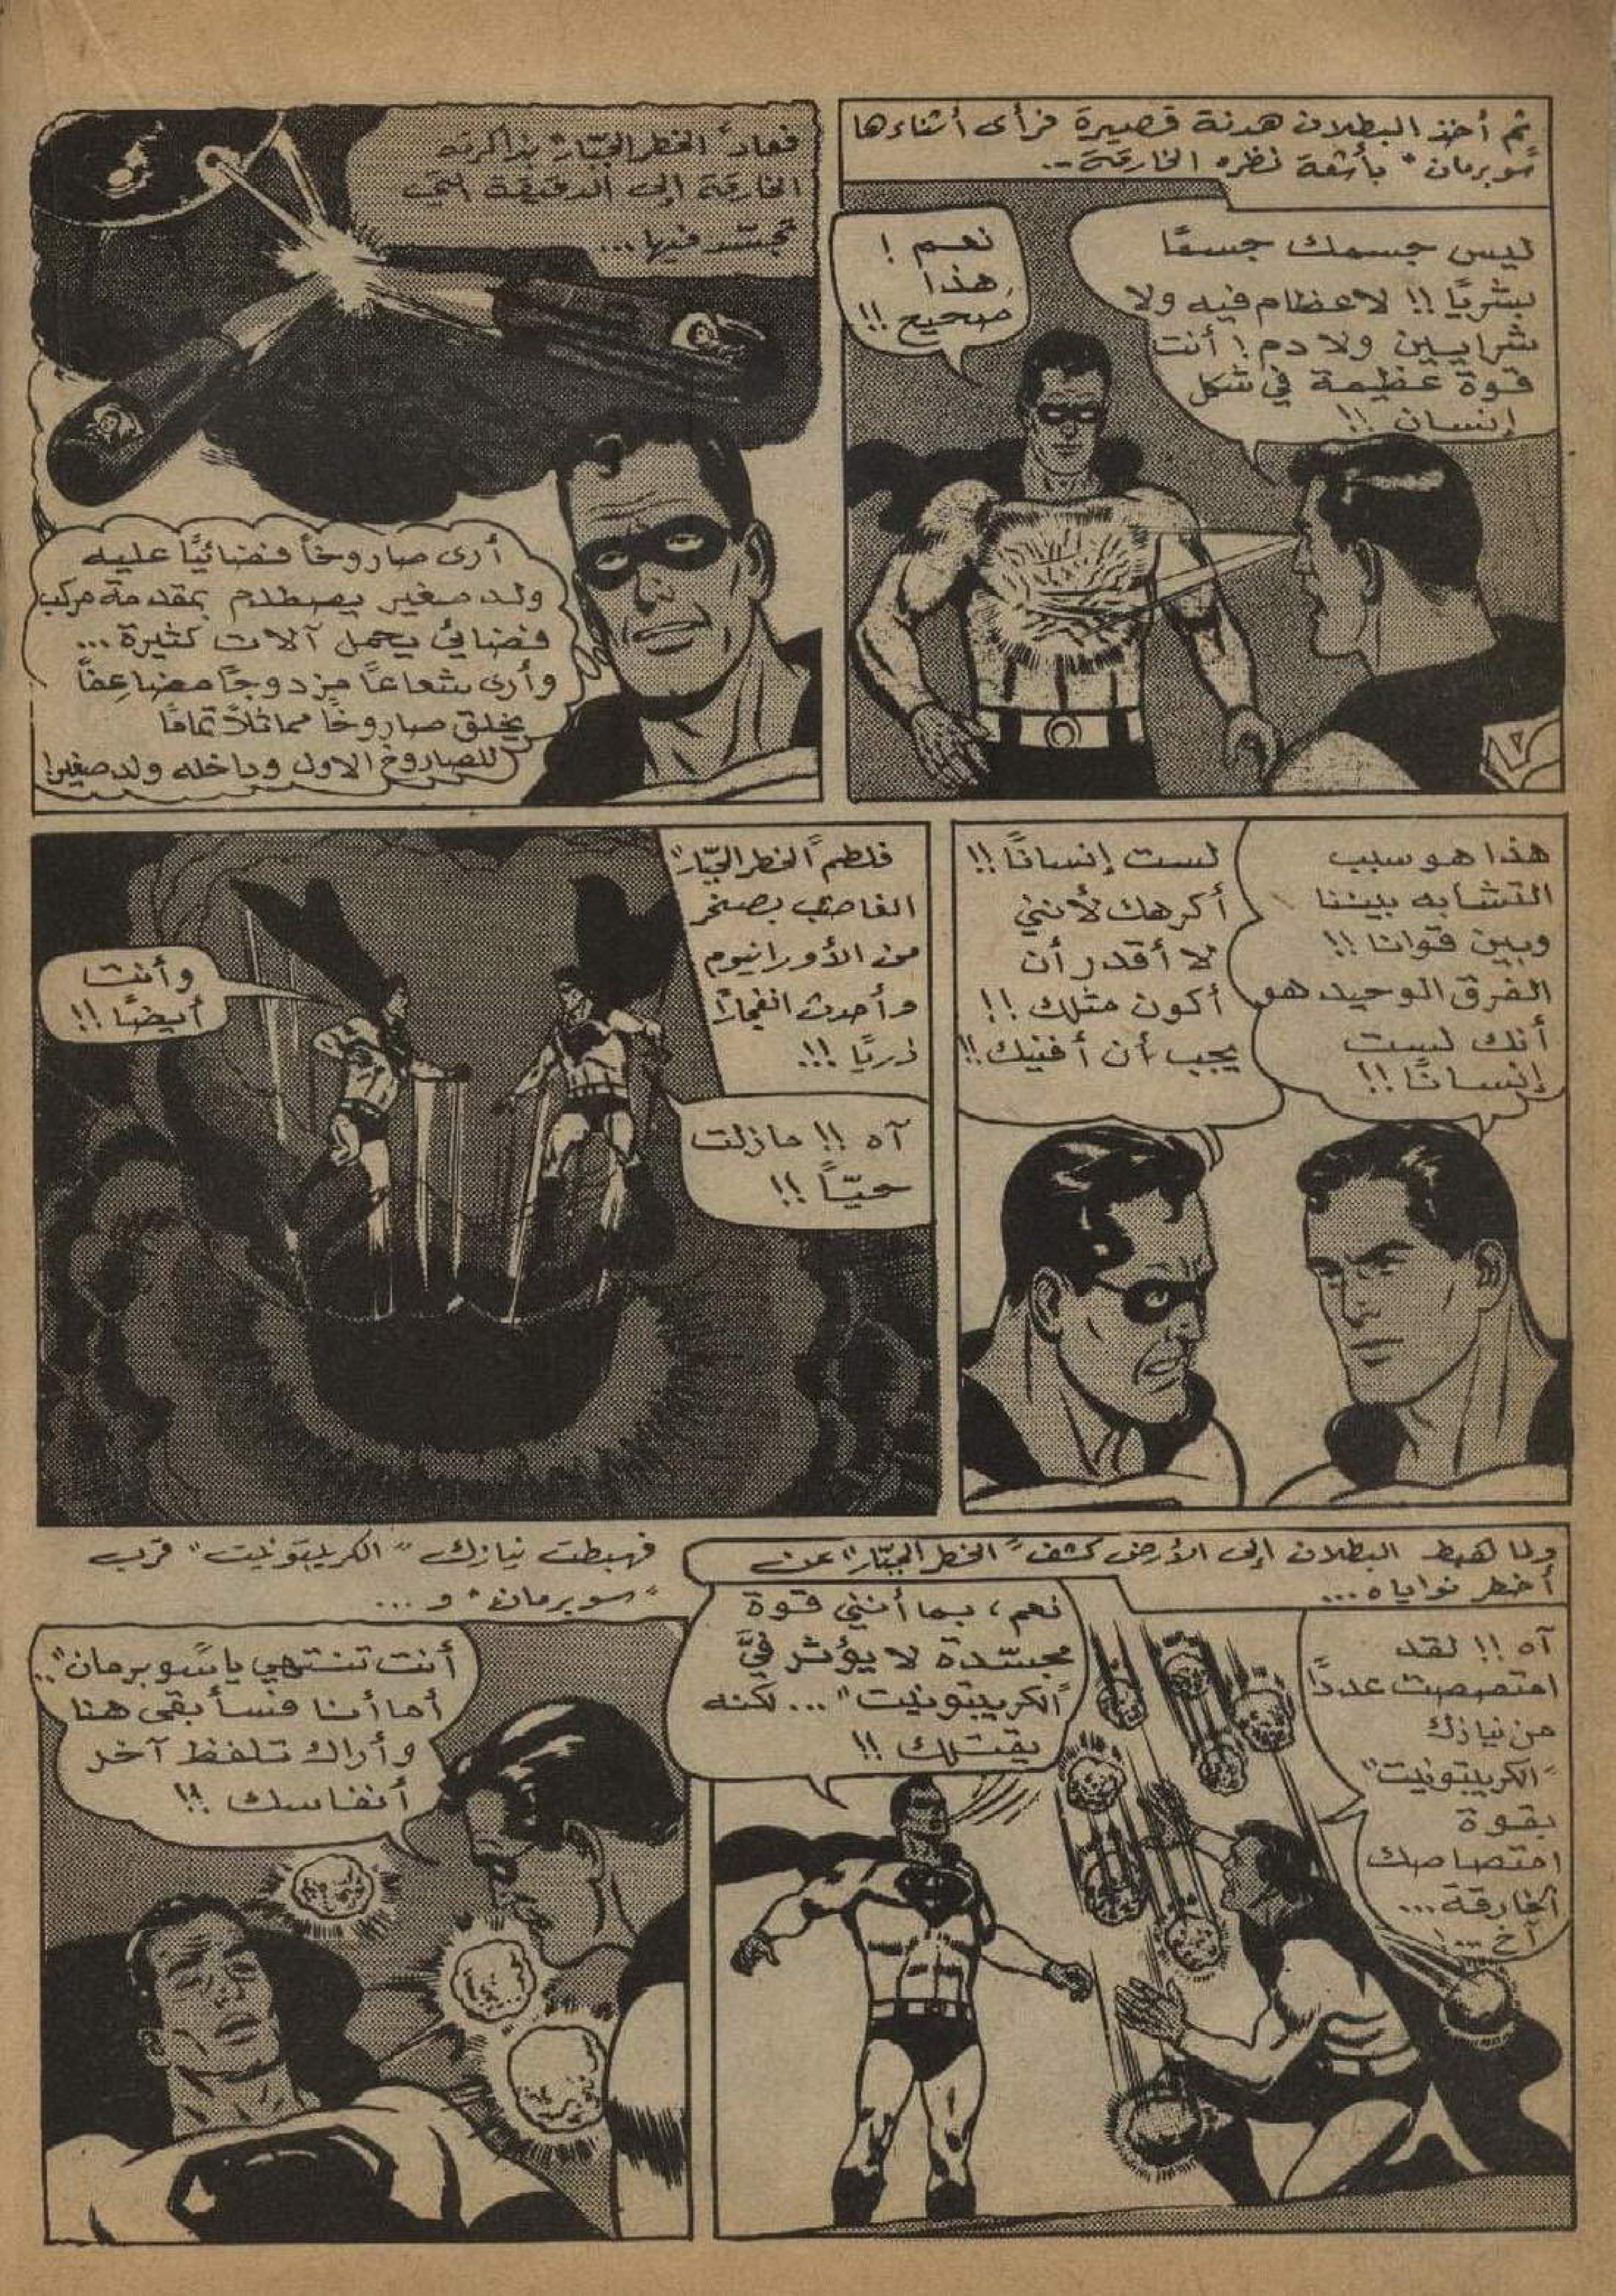 ثم أخذ البطلان هدنة قصيرة فرأى أثناءها
"سوبرمان" بأشعة نظره الخارقة...
ليس جسمك جسمًا
بشريًا !! لا عظام فيه ولا
شرايين ولا دم ! أنت
قوة عظيمة في شكل
إنسان !!
نعم !
هذا
صحيح !!
فعاد "الخطر الجبّار" بذاكرته
الخارقة إلى الدقيقة التي
تجسّد فيها...
أرى صاروخاً فضائيًا عليه
ولد صغير يصطدم بمقدمة مركب
فضائي يحمل آلات كثيرة...
وأرى شعاعًا مزدوجًا مضاعفًا
يخلق صاروخًا مماثلاً تمامًا
للصاروخ الاول وداخله ولد صغير!
هذا هو سبب
التشابه بيننا
وبين قوانا !!
الفرق الوحيد هو
أنك لست
إنسانًا !!
لست إنسانًا !!
أكرهك لأنني
لا أقدر أن
أكون مثلك !!
يجب أن أفنيك !!
فلطم "الخطر الجبّار"
الغاضب بصخر
من الأورانيوم
وأحدث انفجارًا
ذريًا !!!
آه !! مازلت
حيّاً !!
وأنت
أيضًا !!
ولما هبط البطلان إلى الأرض كشف "الخطر الجبّار" عن
أخطر نواياه...
آه !! لقد
امتصصت عددًا
من نيازك
"الكريبتونيت"
بقوة
امتصاصك
الخارقة...
آخ ...!
نعم، بما أنني قوة
مجسّدة لا يؤثر فيّ
"الكريبتونيت"... لكنه
يقتلك !!
فهبطت نيازك "الكريبتونيت" قرب
"سوبرمان" و...
أنت تنتهي يا "سوبرمان"..
أما أنا فسأبقى هنا
وأراك تلفظ آخر
أنفاسك !!